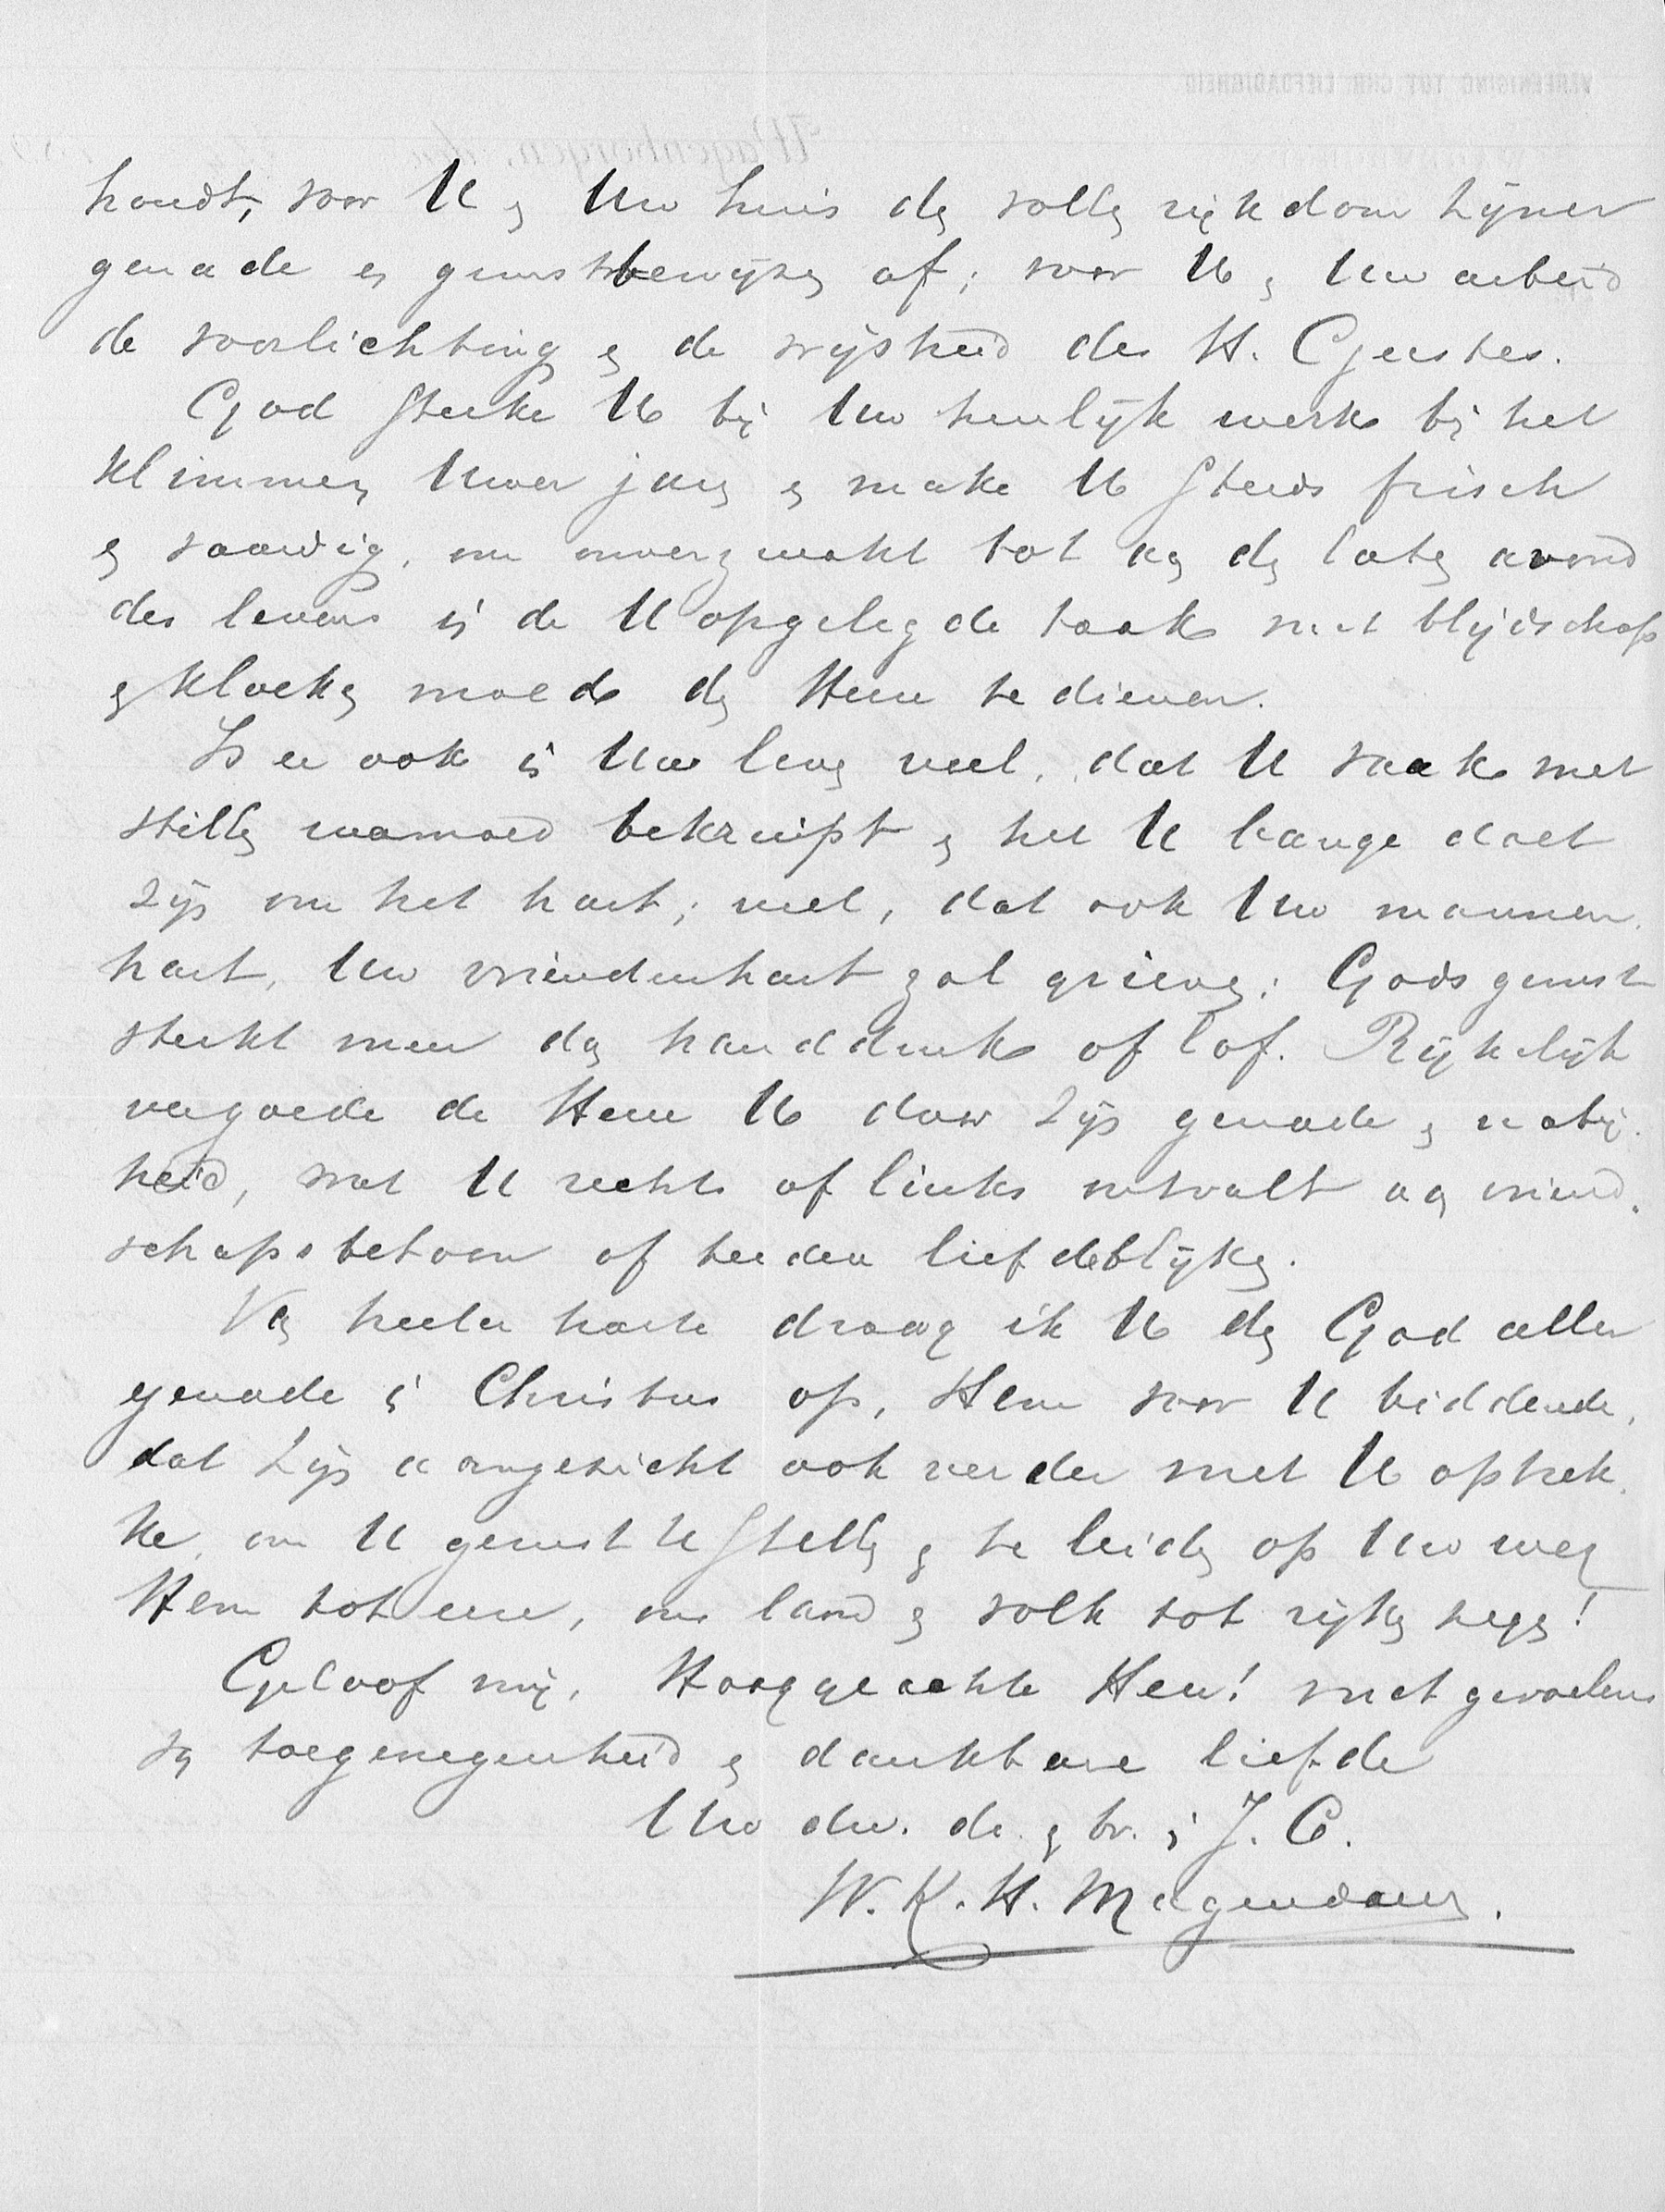 houdt, voor U en Uw huis den vollen rijkdom Zijner
genade en gunstbewijzen af; voor U en Uw arbeid
de voorlichting en de wijsheid des H. Geestes.
God sterke U bij Uw heerlijk werk bij het
klimmen Uwer jaren en make U steeds frisch
en vaardig, om onverzwakt tot aan den laten avond
des levens in de U opgelegde taak met blijdschap
en kloeken moed den Heere te dienen.
Is er ook in Uw leven veel, dat U vaak met
stillen weemoed bekruipt en het U bange doet
zijn om het hart; veel, dat ook Uw mannen-
hart, Uw vriendenhart zal grieven: Gods gunst
sterkt meer dan handdruk of lof. Rijkelijk
vergoede de Heere U door Zijn genade en nabij-
heid, wat U rechts of links ontvalt aan vriend-
schapsbetoon of teedere liefdeblijken.
Van heeler harte draag ik U den God aller
genade in Christus op, Hem voor U biddende,
dat Zijn aangezicht ook verder met U optrek-
ke, om U gerust te stellen en te leiden op Uw weg
Hem tot eere, ons land en volk tot rijken zegen!
Geloof mij, Hooggeachte Heer! met gevoelens
van toegenegenheid en dankbare liefde
Uw dw. dr. en br. in J. C.
W. K. H. Magendans.
VEREENIGING TOT CHR. LIEFDADIGHEID
Wagenborgen, den